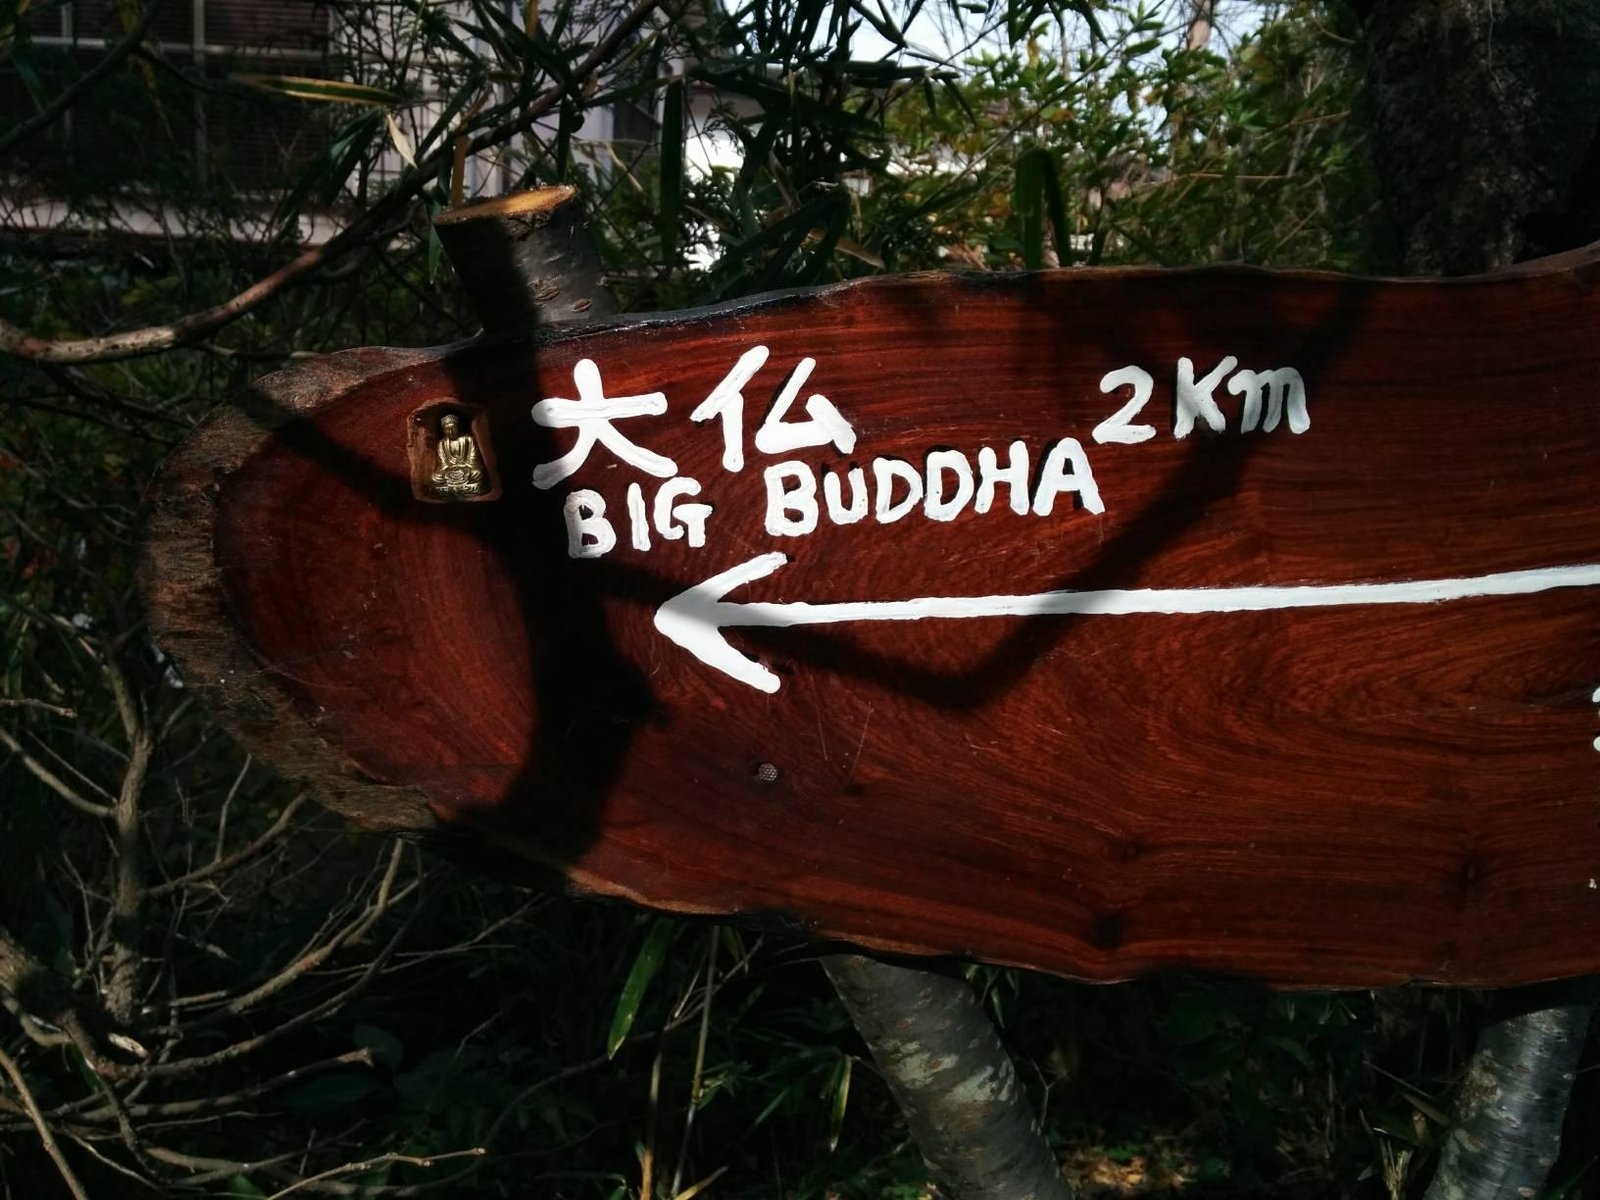 大仏 2Km
BIG BUDDHA